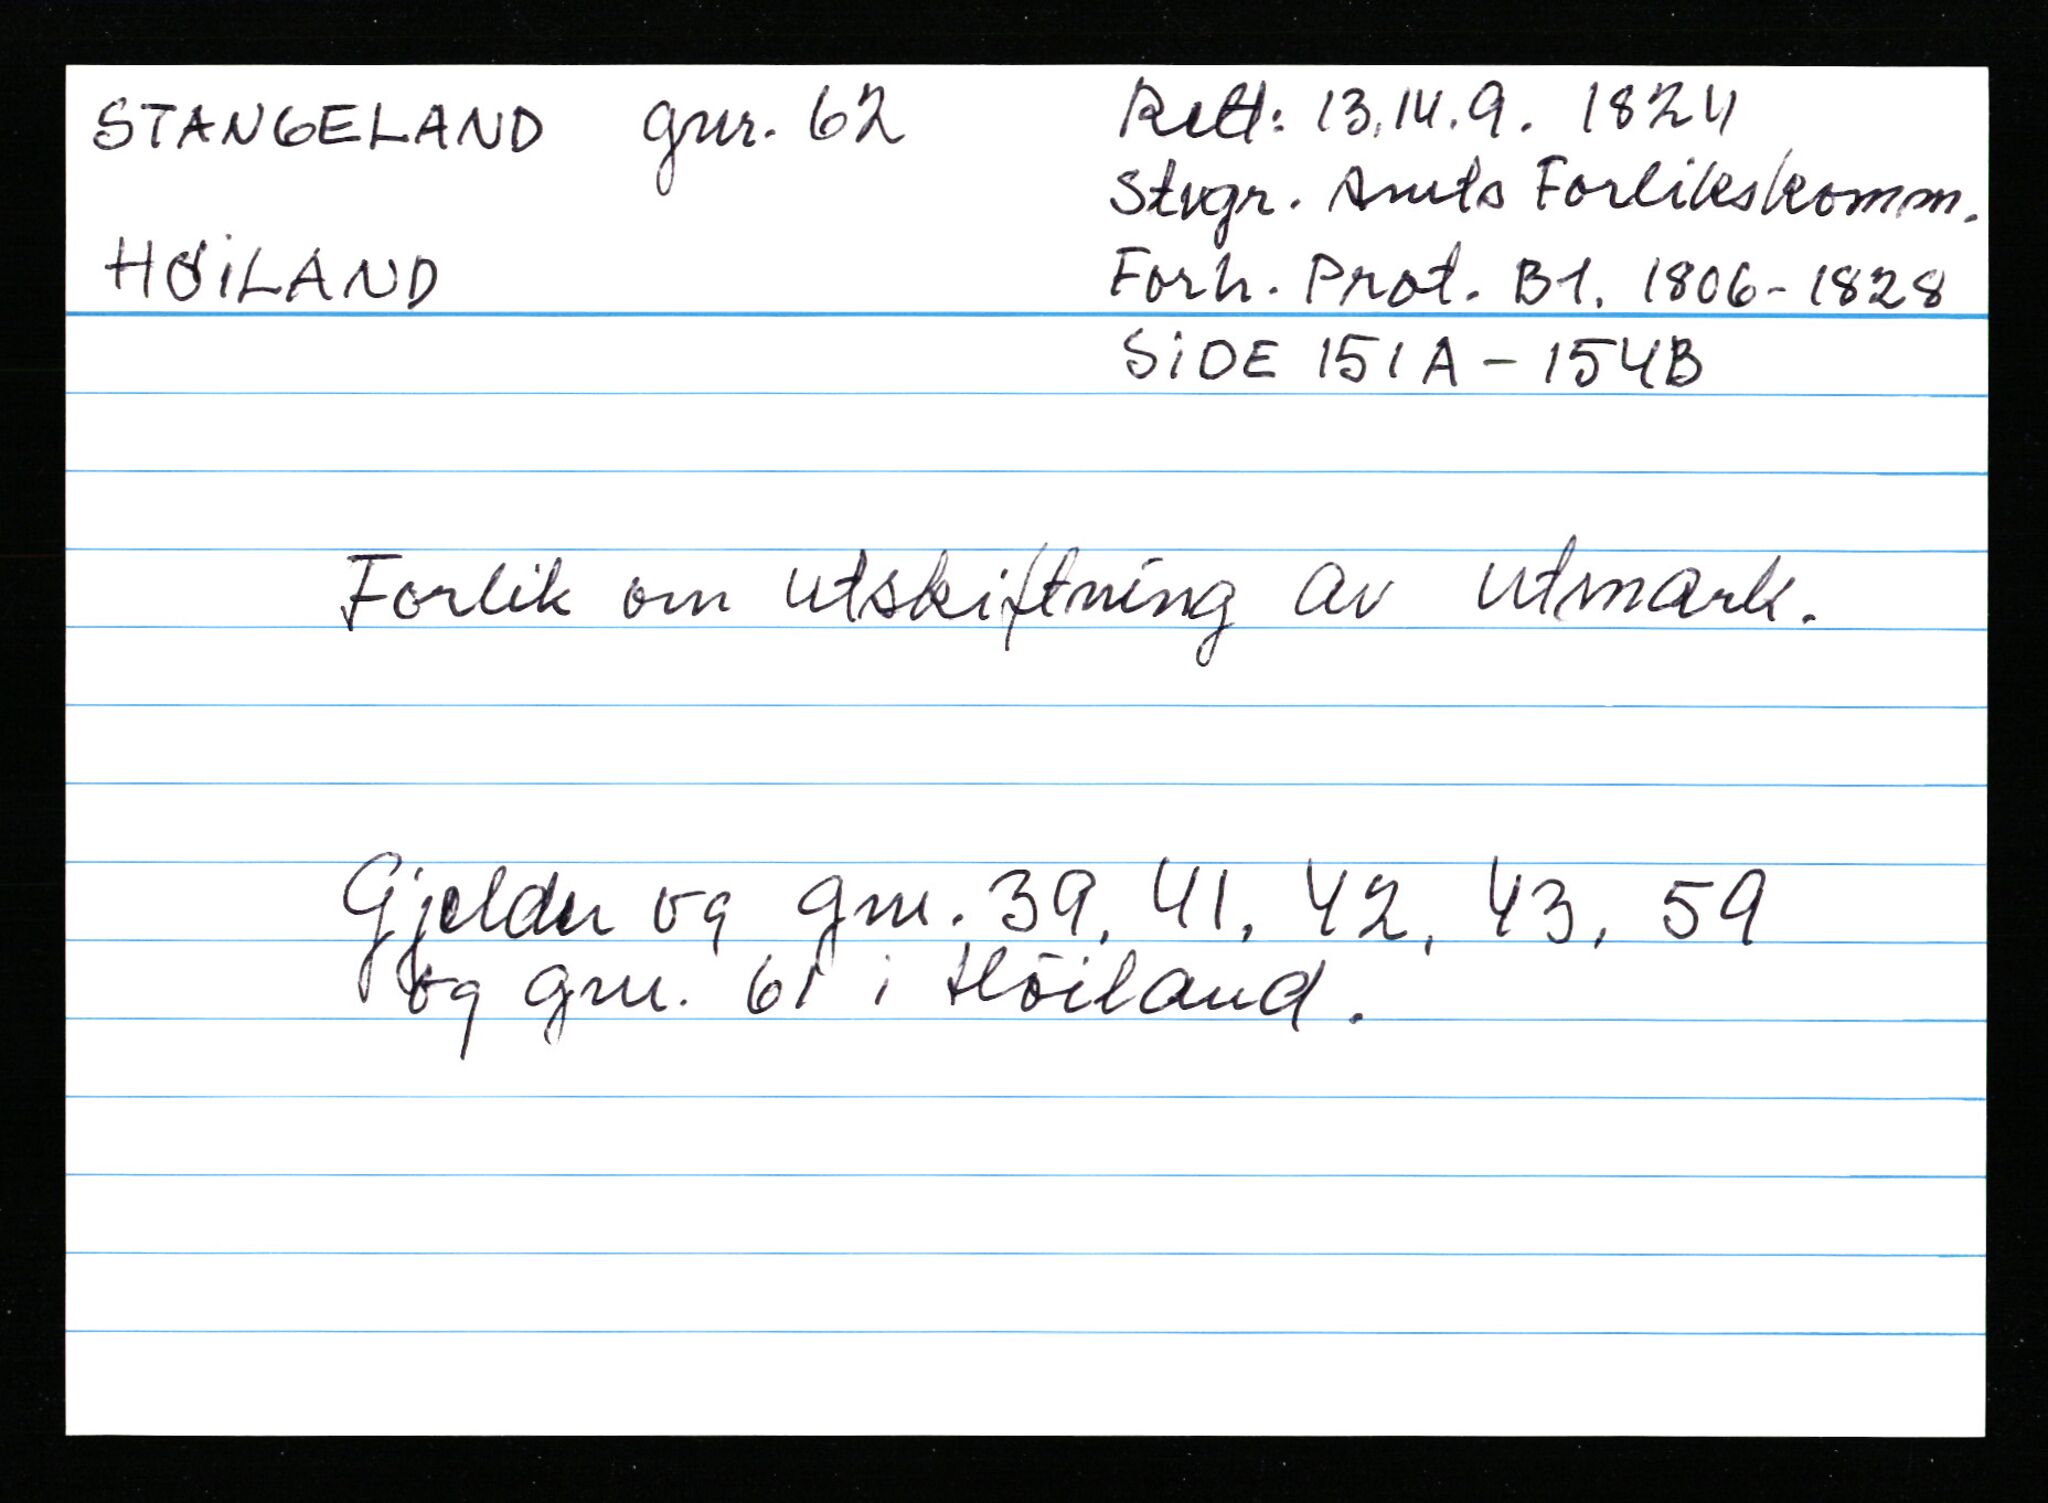 STANGELAND gnr. 62
HØILAND
Rett: 13, 14. 9. 1824
Stvgr. Amts Forlikskomm.
Forh. Prot. B1. 1806-1828
SiDE 151A - 154B
Forlik om utskiftning av utmark.
Gjelder og gnr. 39, 41, 42, 43, 59
og gnr. 61 i Höiland.